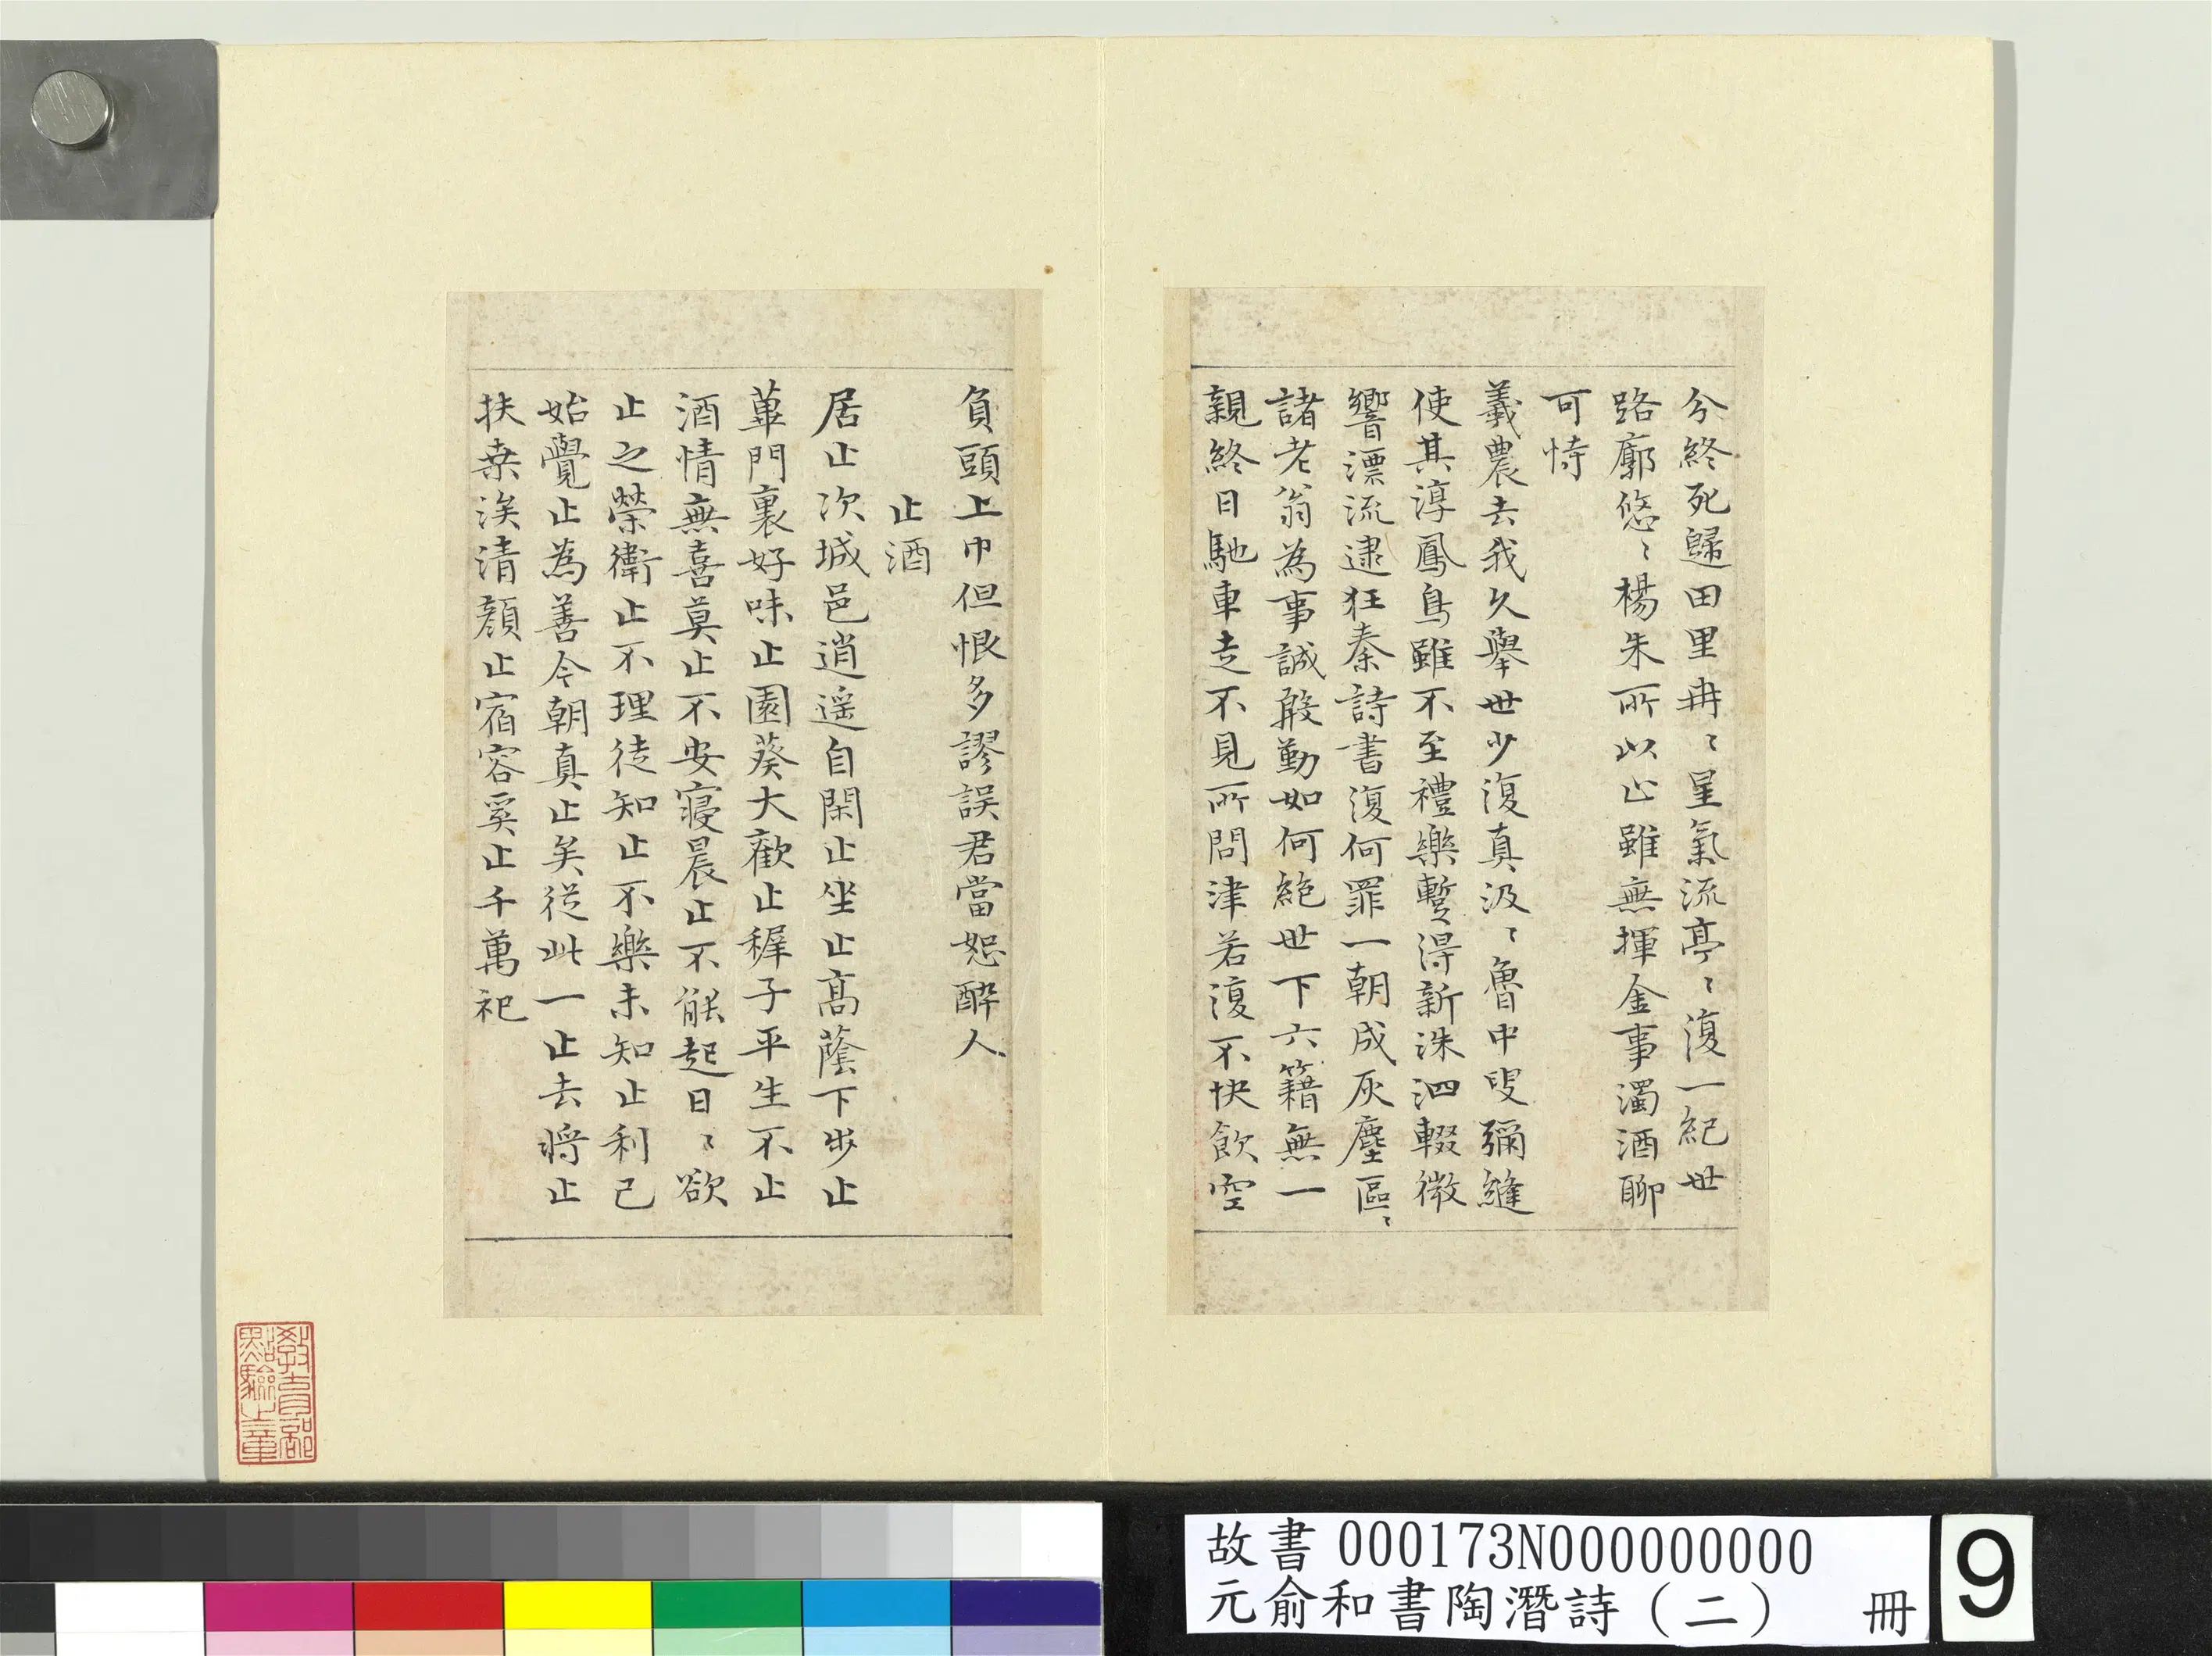 兮終死歸田里冉〻星氣流亭〻復一紀世
路廓悠〻楊朱所以止雖無揮金事濁酒聊
可恃
羲農去我久舉世少復真汲〻魯中叟彌縫
使其淳鳳鳥雖不至禮樂暫得新洙泗輟微
響漂流逮狂秦詩書復何罪一朝成灰塵區〻
諸老翁為事誠殷勤如何絕世下六籍無一
親終日馳車走不見所問津若復不快飲空
負頭上巾但恨多謬誤君當恕醉人
止酒
居止次城邑逍遥自閑止坐止高蔭下步止
蓽門裏好味止園葵大歡止穉子平生不止
酒情無喜莫止不安寢晨止不能起日〻欲
止之榮衛止不理徒知止不樂未知止利己
始覺止為善今朝真止矣從此一止去將止
扶桑涘清顏止宿容奚止千萬祀
教育部
點驗之章
故書000173N000000000
元俞和書陶潛詩（二） 冊
9